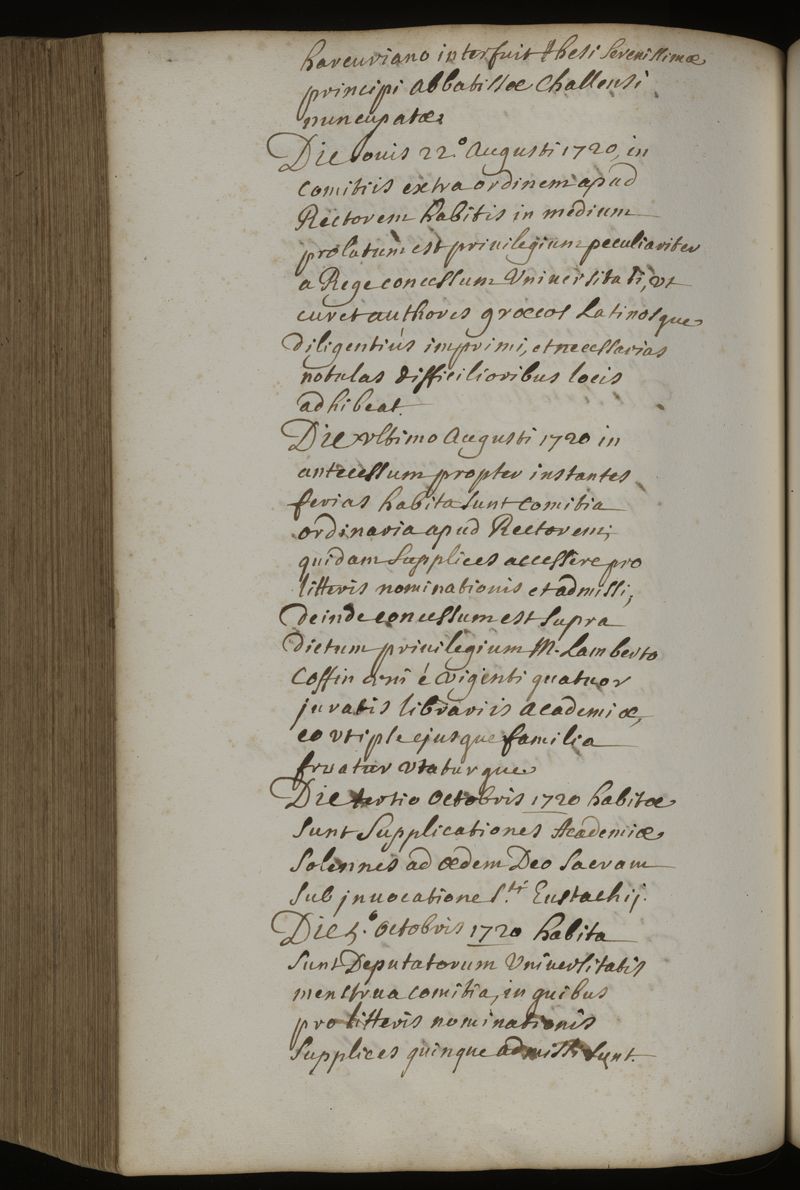 harcuriano interfuit thesi Serenissimæ
principi abbatissæ Challensi
nuncupatæ.
Die Iouis 22.º Augusti 1720, in
comitiis extra ordinem apud
Rectorem habitis in medium
prolatum est priuilegium peculiariter
a Rege concessum Vniuersitati, vt
curet authores græcos Latinosque
diligentiùs imprimi, et necessarias
notulas difficilioribus locis
adhibeat.
Die vltimo Augusti 1720 in
antecessum propter instantes
ferias habita sunt comitia
ordinaria apud Rectorem;
quidam supplices accessere pro
litteris nominationis et admissi;
deinde concessum est supra
dictum priuilegium M. Lamberto
Coffin é vigenti quatuor
juratis librariis academiæ,
eo vt ipse ejusque familia
fruatur vtaturque.
Die tertio Octobris 1720 habitæ
sunt Supplicationes Academiæ
Solennes ad ædem Deo Sacram
sub jnuocatione S.ti Eustachij.
Die 5.º octobris 1720 habita
sunt Deputatorum Vniuersitatis
menstrua comitia, in quibus
pro litteris nominationis
Supplices quinque admissi sunt.